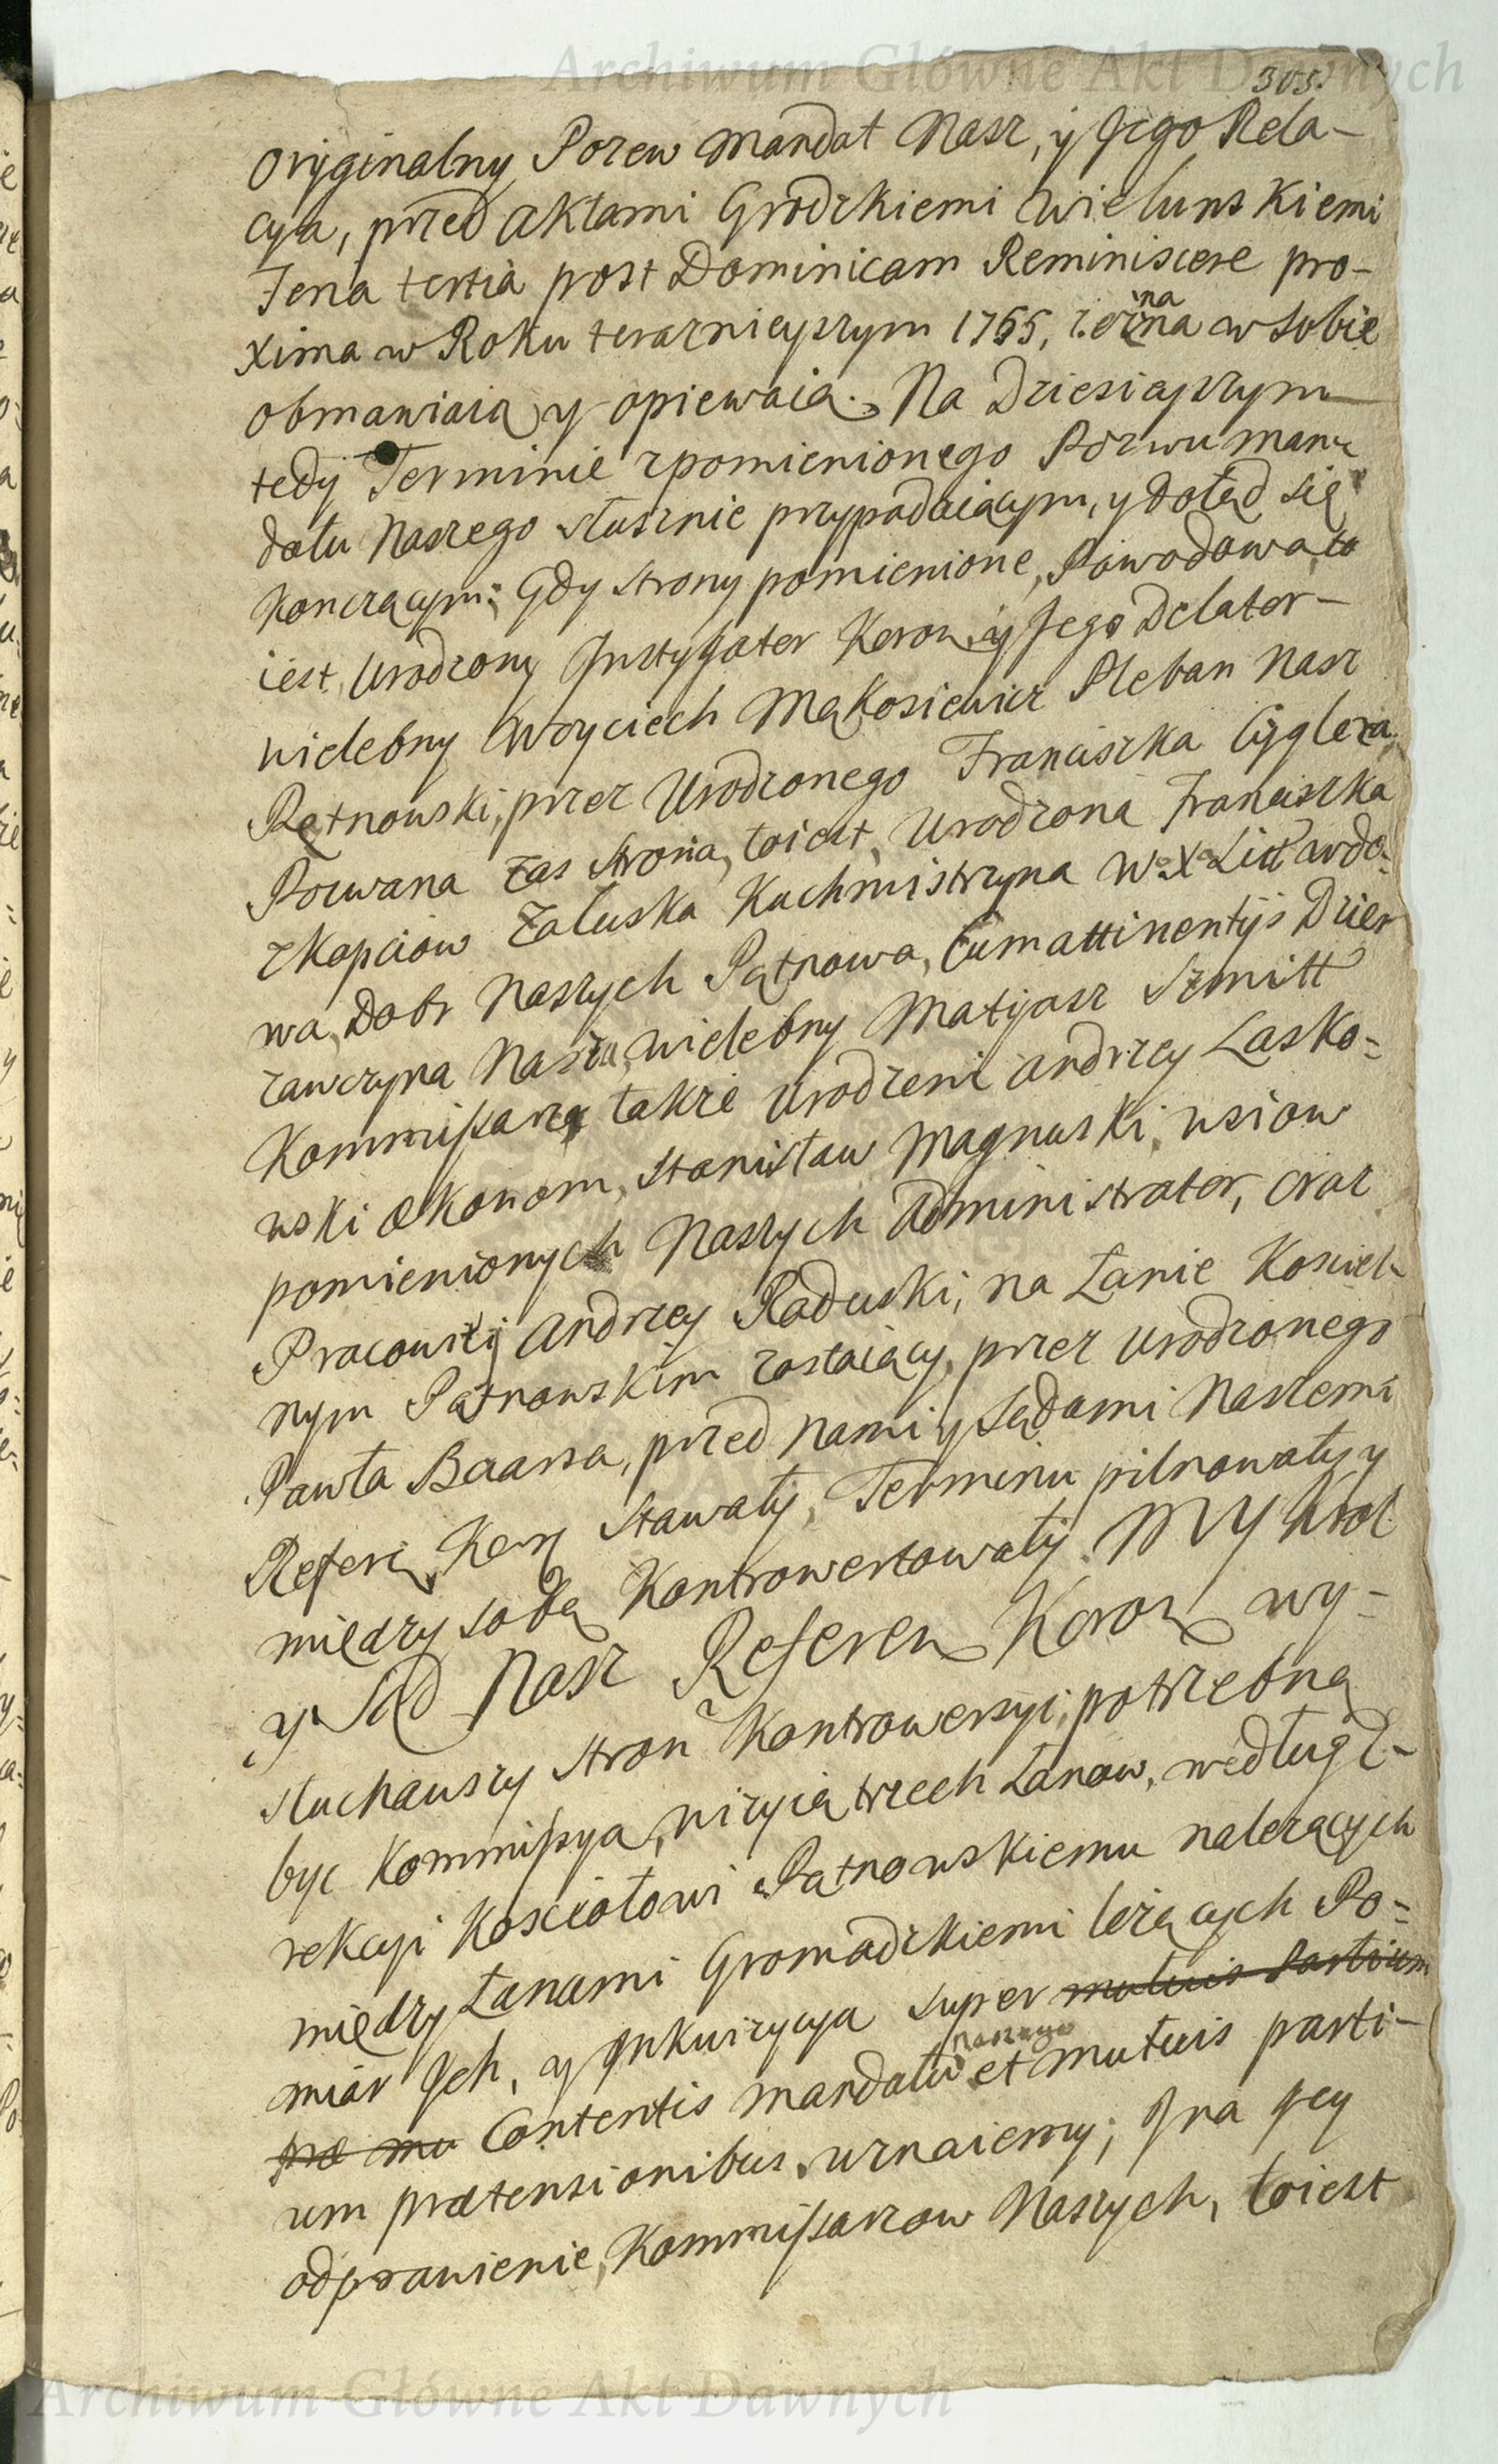 Archiwum Główne Akt Dawnych
305.
oryginalny Pozew Mandat Nasz, y Jego Rela-
cya, przed Aktami Grodzkiemi Wielunskiemi
Feria tertia post Dominicam Reminiscere pro-
xima w Roku teraznieyszym 1765, w sobie
obmawiaią y opiewaią. Na Dzisieyszym
tedy Terminie zpomienionego Pozwu Man-
datu Naszego słusznie przypadaiącym, y dotąd się
konczącym; Gdy strony pomienione, Powodowa to
iest, Urodzony Instygator Koron. y Jego Delator-
wielebny Woyciech Mąkosiewicz Pleban Nasz
Pątnowski, przez Urodzonego Franciszka Cyglera,
Pozwana zas strona, toiest, Urodzona Franciszka
z Kapciow Załuska Kuchmistrzyna W. X. Litt
wa, Dobr Naszych Pątnowa, cum attinentijs Dzier
zawczyna Nasza, wielebny Matyasz Szmitt
Kommissarz, takze Urodzeni Andrzey Lasko-
wski Ekonom, Stanisław Magnuski, wsiow
pomienionych Naszych Administrator, oraz
Pracowity Andrzey Raduski, na Łanie Kosciel-
nym Pątnowskim zostaiący, przez Urodzonego
Pawła Baarsa, przed Nami y Sądami Naszemi
Referen. Kor. Stawały, Terminu pilnowały y
miedzy sobą Kontrowertowały. MY Krol
y Sąd Nasz Referen. Koron. wy-
słuchawszy stron Kontrowersyi, potrzebną
byc Kommissya, wizyią trzech Łanow, według E-
rekcyi Kosciołowi Pątnowskiemu nalezących
miedzy Łanami Gromadzkiemi lezących Po-
miar Jch, y Inkwizycya super mutuis Partium
præ mu Contentis Mandatu Naszego et mutuis parti-
um prætensionibus, uznaiemy; Jna Jey
odprawienie, Kommissarzow Naszych, toiest
Archiwum Główne Akt Dawnych